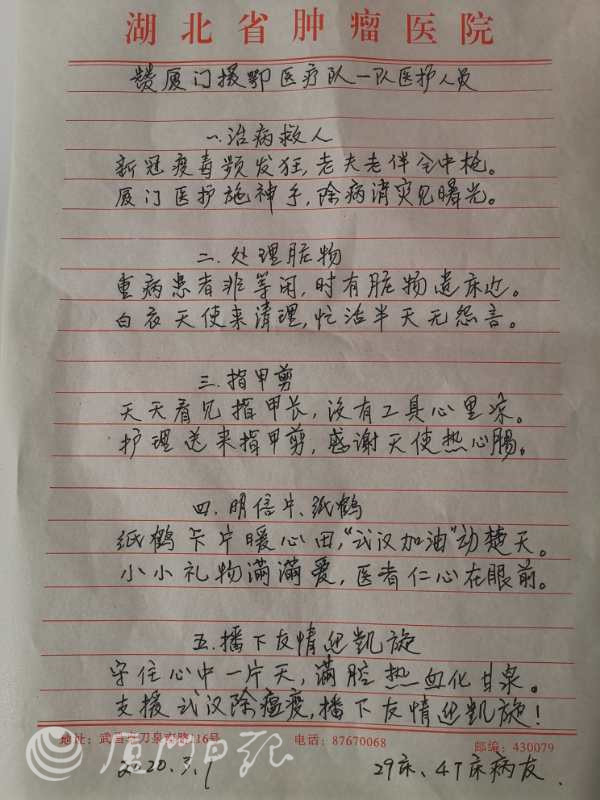 湖北省肿瘤医院
赞厦门援鄂医疗队一队医护人员
一.治病救人
新冠疫毒频发狂,老夫老伴全中枪。
厦门医护施神手,除病消灾见曙光。
二.处理脏物
重病患者非等闲,时有脏物遗床边。
白衣天使来清理,忙活半天无怨言。
三.指甲剪
天天看见指甲长,没有工具心里凉。
护理送来指甲剪,感谢天使热心肠。
四.明信片、纸鹤
纸鹤卡片暖心田,“武汉加油”动楚天。
小小礼物满满爱,医者仁心在眼前。
五.播下友情迎凯旋
守住心中一片天,满腔热血化甘泉。
支援武汉除瘟疫,播下友情迎凯旋!
地址:武昌卓刀泉南路116号 电话:87670068 邮编:430079
厦门日报
2020.3.1 29床、47床病友